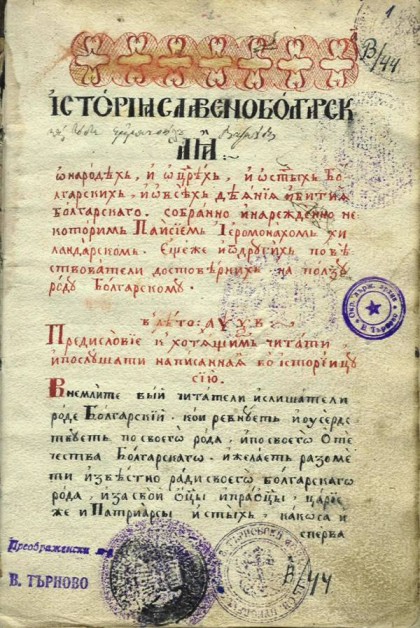 1
В/44
ІСТОРІѦ СЛАВЕНОБОЛГАРСК
АѦ
Ѡ народѣхъ, и ѡ ц҃рѣхъ, и ѡ ст҃ыхъ бо
лгарскихъ, и ѡ всѣхъ дѣѧнїѧ и битиѧ
болгарскаго. собранно и нарежденно не
которимъ Паисїемъ Іеромонахомъ хи
ландарскомъ. Еще же и ѡ другихъ повѣ
ствователи достовѣрнихъ на ползу
роду Болгарскому.
в лѣто:
Предисловїе к хотѧщимъ читати
и послушати написаннаѧ во історіицу
сїю.
Внемлите вый читатели и слишатели
роде Болгарскїй. кои ревнуетъ и оусердс
твуетъ по своего рода, и по своего Оте
чества Болгарскагѡ. и желаетъ разоме
ти извѣстно ради своегѡ болгарскагѡ
рода, и за свои ѡц҃ы и праѡц҃ы, царїе
же и Патриарсы и ст҃ыхъ, какѡса и
сперва
Преображенски
В. ТЪРНОВО
В/44